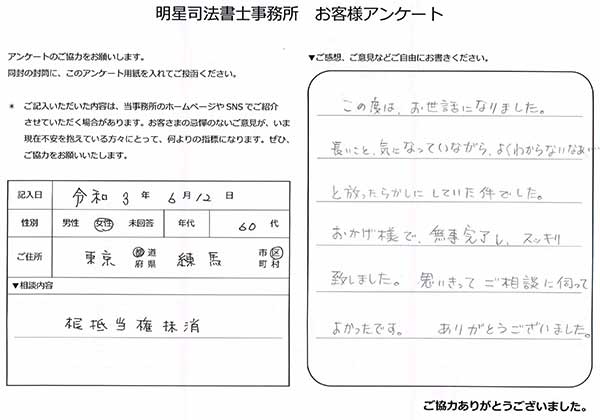 明星司法書士事務所　お客様アンケート
アンケートのご協力をお願いします。
同封の封筒に、このアンケート用紙を入れてご投函ください。
* ご記入いただいた内容は、当事務所のホームページやSNSでご紹介
させていただく場合があります。お客さまの忌憚のないご意見が、いま
現在不安を抱えている方々にとって、何よりの指標になります。ぜひ、
ご協力をお願いいたします。
記入日 令和 3 年 6 月 12 日
性別 男性 女性 未回答 年代 60 代
ご住所 東京 都道府県 練馬 市区町村
▼相談内容
根抵当権抹消
▼ご感想、ご意見などご自由にお書きください。
この度は、お世話になりました。
長いこと、気になっていながら、よくわからないなあ…
と放ったらかしにしていた件でした。
おかげ様で、無事完了し、スッキリ
致しました。 思いきってご相談に伺って
よかったです。 ありがとうございました。
ご協力ありがとうございました。